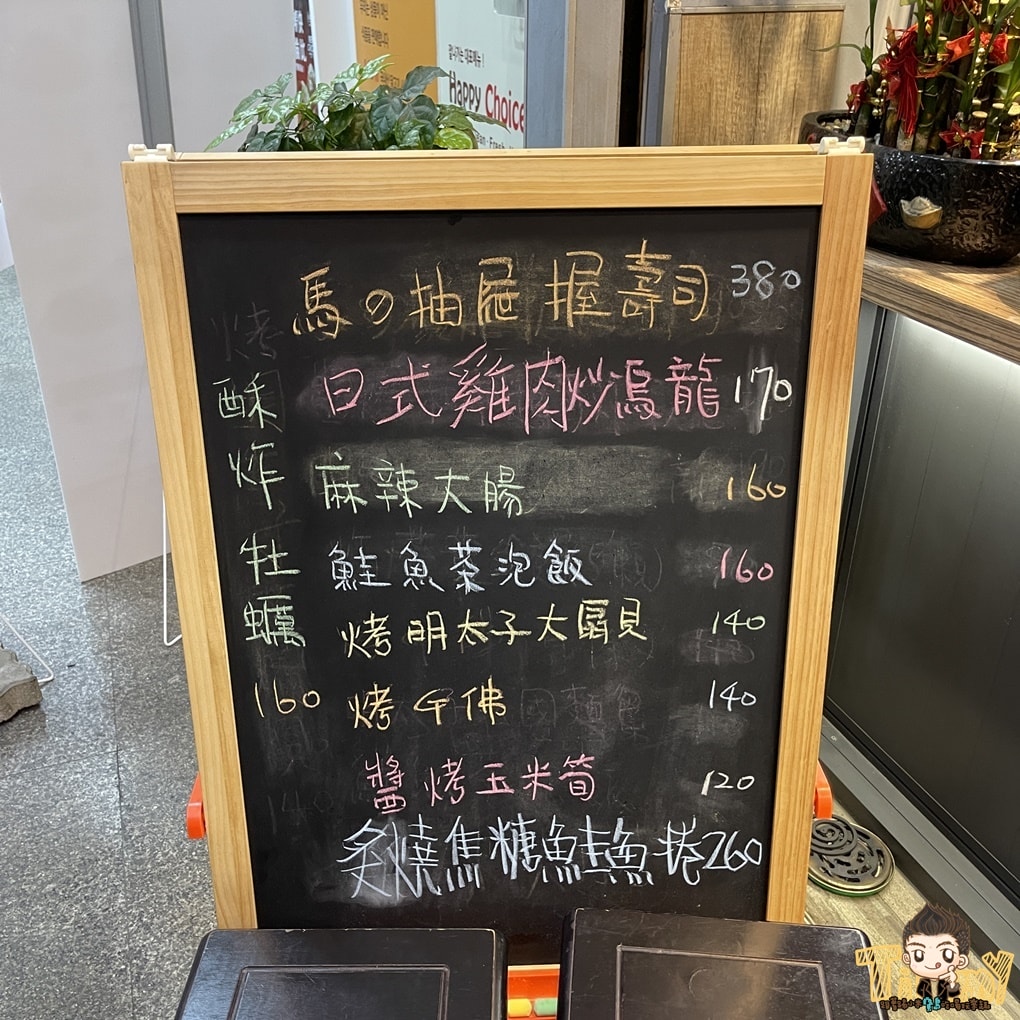 Happy Choice
馬の抽屉握壽司 380
日式雞肉炒烏龍 170
麻辣大腸 160
鮭魚茶泡飯 160
烤明太子大扇貝 140
烤午佛 140
醬烤玉米筍 120
炙燒焦糖鮭魚捲 260
酥炸牡蠣 160